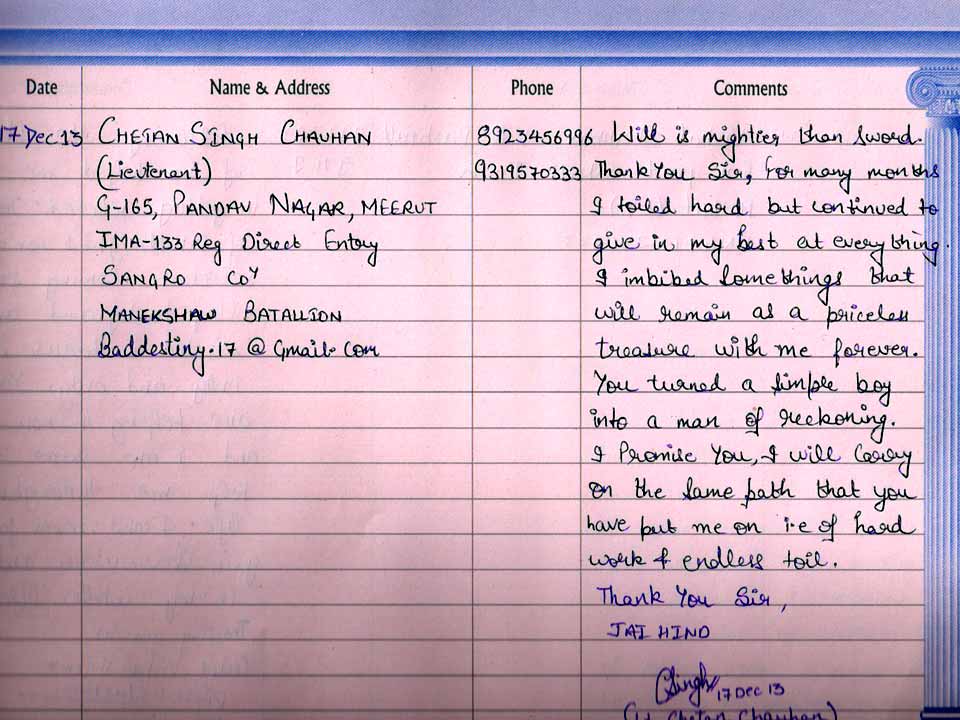 Date Name & Address Phone Comments
17 Dec 13 CHETAN SINGH CHAUHAN 8923456996 Will is mightier than sword.
(Lieutenant) 9319570333 Thank You Sir, for many months
G-165, PANDAV NAGAR, MEERUT I toiled hard but continued to
IMA-133 Reg Direct Entry give in my best at everything.
SANGRO COY I imbibed somethings that
MANEKSHAW BATALLION will remain as a priceless
Baddestiny.17@Gmail.com treasure with me forever.
You turned a simple boy
into a man of reckoning.
I Promise You, I will carry
on the same path that you
have put me on i.e of hard
work & endless toil.
Thank You Sir,
JAI HIND
CSingh 17 Dec 13
(Lt Chetan Chauhan)